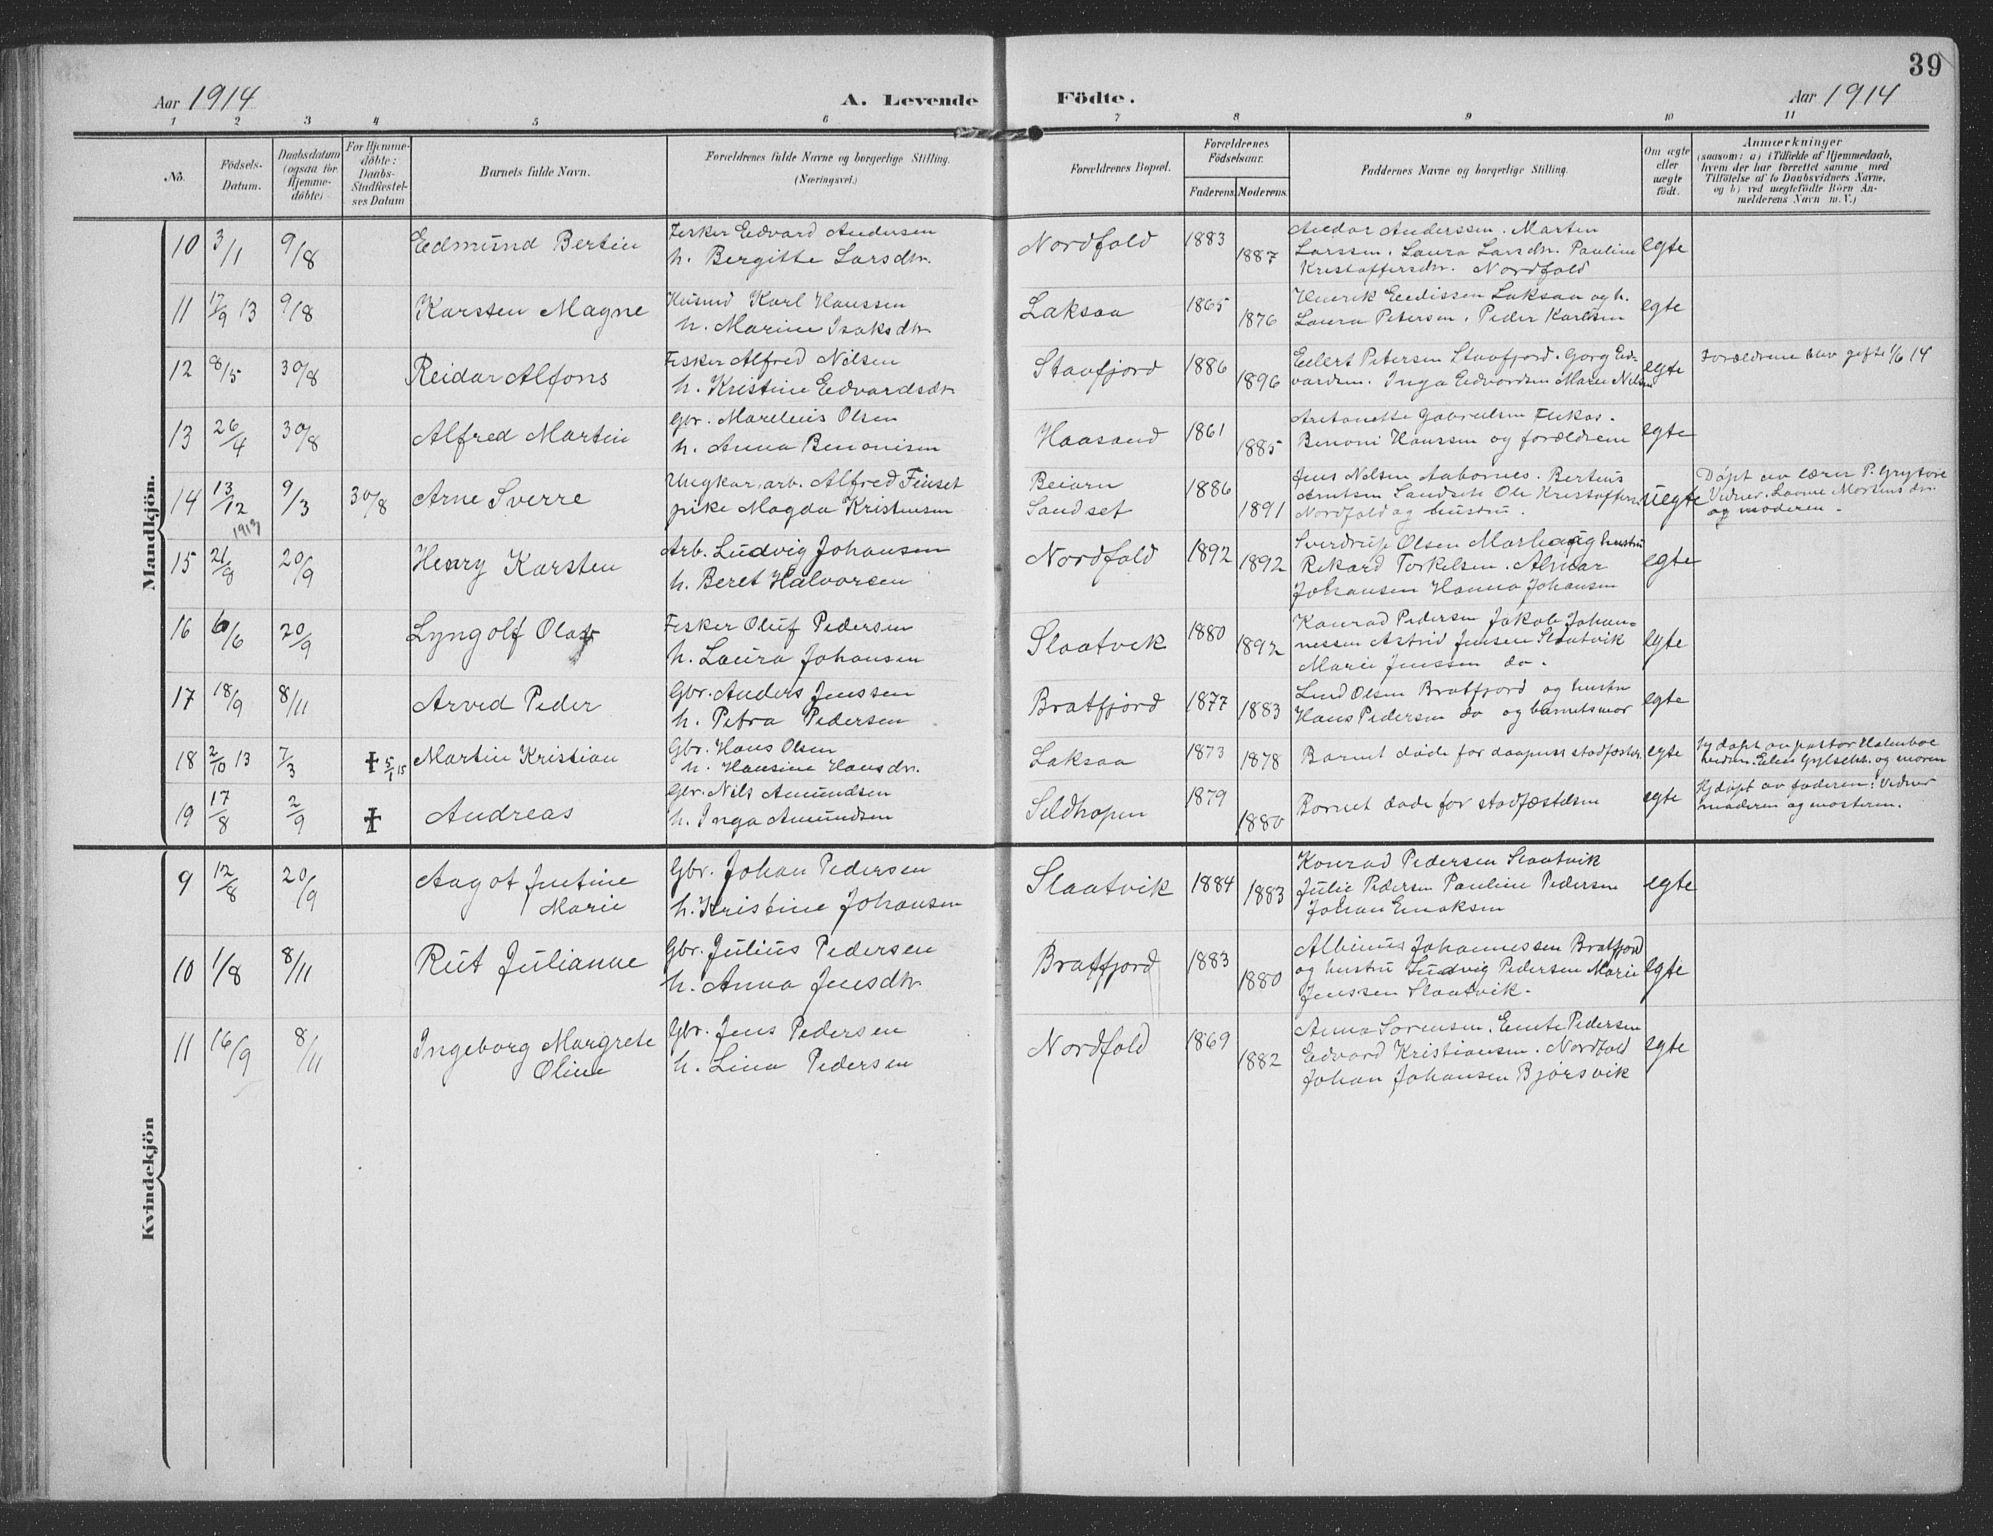 39
Aar 1914
A. Levende
Födte.
Aar 1914
1 2 3 4 5 6 7 8 9 10 11
No.
Födsels-
Datum.
Daabsdatum
(ogsaa for
Hjemme-
döbte)
For Hjemme-
döbte:
Daabs-
Stadfæstel-
ses Datum
Barnets fulde Navn.
Forældrenes fulde Navne og borgerlige Stilling.
(Næringsvei.)
Forældrenes Bopæl.
Forældrenes
Födselsaar.
Faderens.
Moderens.
Faddernes Navne og borgerlige Stilling.
Om ægte
eller
uægte
födt.
Anmærkninger
(saasom: a) i Tilfælde af Hjemmedaab,
hvem der har forrettet samme med
Tilföielse af to Daabsvidners Navne,
og b) ved uægtefödte Börn An-
melderens Navn m. V.)
Mandkjön.
10 3/1 9/8 Edmund Bertin
Fisker Edvard Andersen
h. Bergitte Larsdtr.
Nordfold 1883 1887
Andor Anderssen. Martin
Larssen. Laura Larsdtr. Pauline
Kristoffersdtr. Nordfold
egte
11 17/9 13 9/8 Karsten Magne
Husmd Karl Hanssen
h. Marine Isaksdtr
Laksaa 1865 1876
Henrik Eedissen Laksaa og h.
Laura Petersen. Peder Karlsen
egte
12 8/5 30/8 Reidar Alfons
Fisker Alfred Nilsen
h. Kristine Edvardsdtr
Stavfjord 1886 1896
Eilert Petersen Stavfjord. Georg Ed-
vardsen. Inga Edvardsen Marie Nilsen
egte
Forældrene blev gifte 1/6 14
13 26/4 30/8 Alfred Martin
Gbr. Marelius Olsen
h. Anna Benonisen
Haasand 1861 1885
Antonette Gabrielsen
Benoni Hanssen og forældrene
egte
14 13/12 1913 9/3 30/8 Arne Sverre
Ungkar, arb. Alfred Finset
pike Magda Kristensen
Beiarn
Sandset
1886 1891
Jens Nilsen Aabornes. Bertius
Arntsen Sandset Ole Kristoffersen
Nordfold og hustru.
uegte
Døpt av lærer P. Grytvik
Vidner. Lovine Mortensdtr.
og moderen.
15 21/8 20/9 Henry Karsten
Arb. Ludvig Johansen
h. Beret Halvorsen
Nordfold 1892 1892
Sverdrup Olsen Marhaug hustru
Rikard Torkelsen. Almar
Johansen Hanna Johansen
egte
16 6/6 20/9 Lyngolf Olav
Fisker Oluf Pedersen
h. Laura Johansen
Slaatvik 1880 1892
Konrad Pedersen Jakob Johan-
nessen Astrid Jensen Slaatvik
Marie Jenssen do.
egte
17 18/9 8/11 Arved Peder
Gbr. Anders Jenssen
h. Petra Pedersen
Bratfjord 1877 1883
Lind Olsen Bratfjord og hustru
Hans Pedersen do og barnets mor
egte
18 2/10 13 7/3 ‡ 5/1 15 Martin Kristian
Gbr. Hans Olsen
h. Hansine Hansdtr.
Laksaa 1873 1878
Barnet døde før daapens stadfæstelse
egte
Hj døpt av pastor Holmboe
og moren
19 17/8 2/9 ‡ Andreas
Gbr. Nils Amundsen
h. Inga Amundsen
Sildhopen 1879 1880
Barnet døde før stadfæstelsen
egte
Hj døpt av faderen. Vidner
moderen og mosteren.
Kvindekjön
9 12/8 20/9 Aagot Justine
Marie
Gbr. Johan Pedersen
h. Kristine Johansen
Slaatvik 1884 1883
Konrad Pedersen Slaatvik
Julie Pedersen Pauline Pedersen
Johan Enoksen
egte
10 1/8 8/11 Rut Julianne
Gbr. Julius Pedersen
h. Anna Jensdtr.
Bratfjord 1883 1880
Albinus Johannessen Bratfjord
og hustru Ludvig Pedersen Marie
Jenssen Slaatvik.
egte
11 16/9 8/11 Ingeborg Margrete
Oline
Gbr. Jens Pedersen
h. Lina Pedersen
Nordfold 1869 1882
Anna Sørensen. Emte Pedersen
Edvard Kristiansen. Nordfold
Johan Johansen Bjørsvik
egte